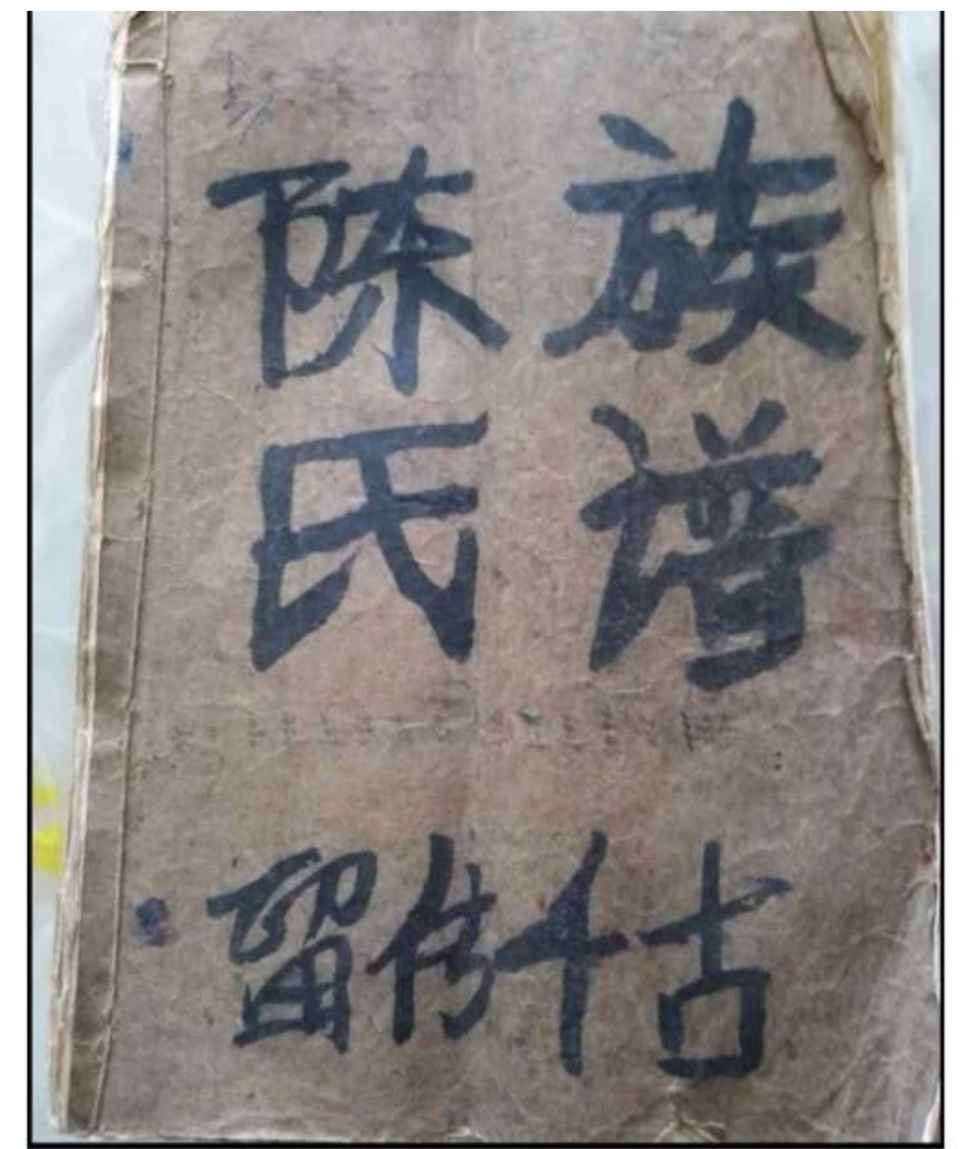 陈族
氏谱
留传千古